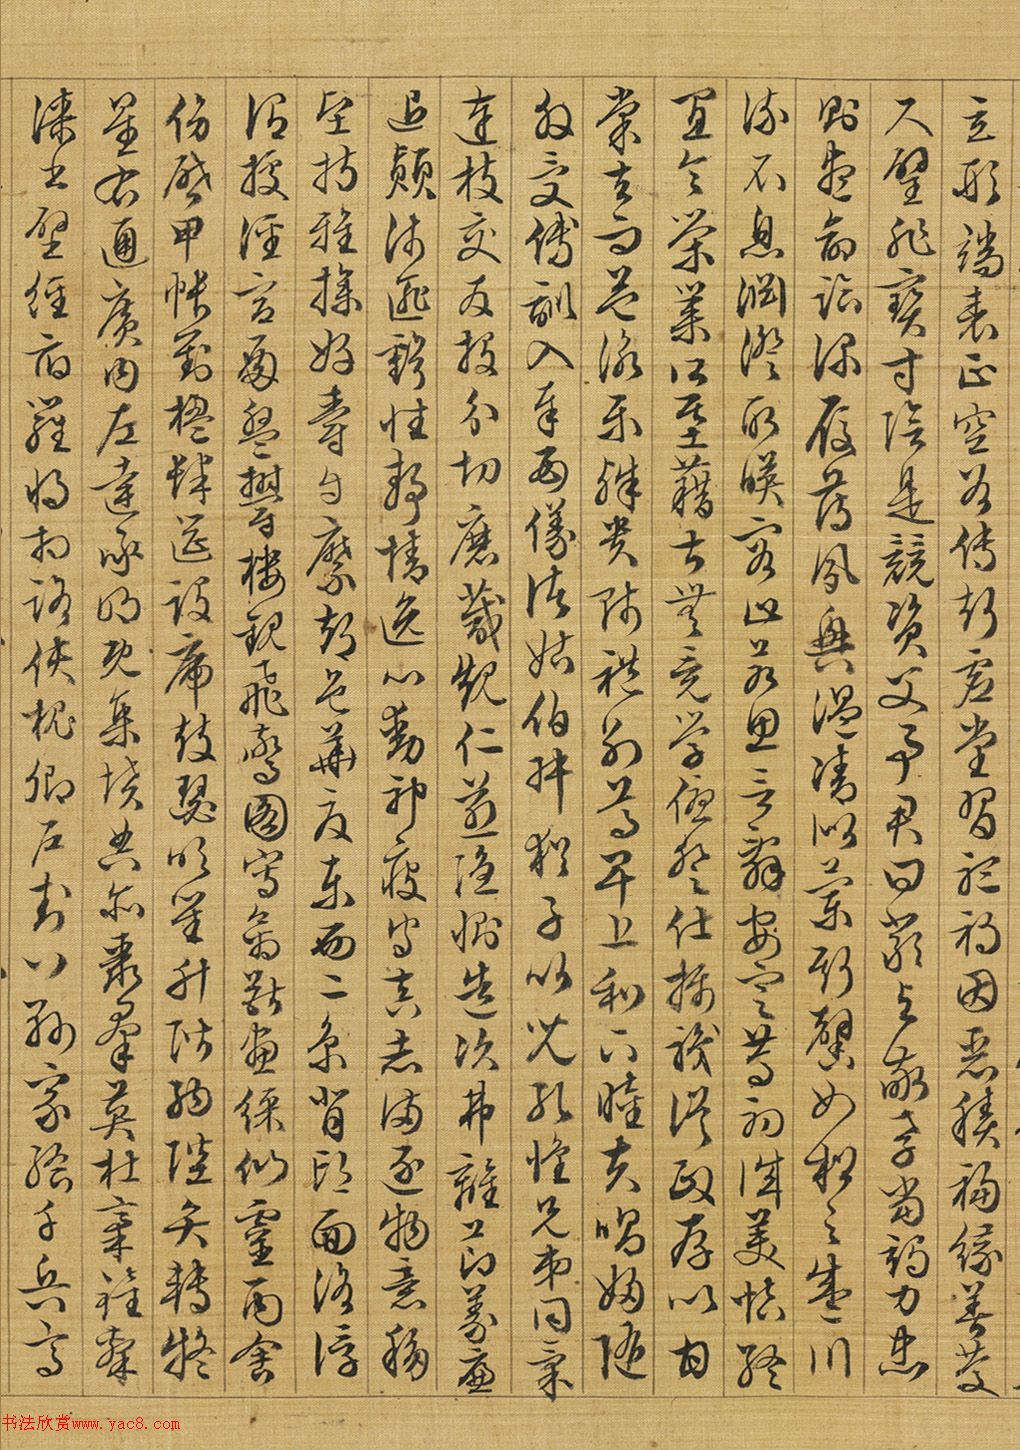 立形端表正空谷傳聲虛堂習聽禍因惡積福緣善慶
尺璧非寶寸陰是競資父事君曰嚴與敬孝當竭力忠
則盡命臨深履薄夙興溫凊似蘭斯馨如松之盛川
流不息淵澄取暎容止若思言辭安定篤初誠美慎終
宜令榮業所基藉甚無竟學優登仕攝職從政存以甘
棠去而益詠樂殊貴賤禮別尊卑上和下睦夫唱婦隨
外受傅訓入奉母儀諸姑伯叔猶子比兒孔懷兄弟同氣
連枝交友投分切磨箴規仁慈隱惻造次弗離節義廉
退顛沛匪虧性靜情逸心動神疲守真志滿逐物意移
堅持雅操好爵自縻都邑華夏東西二京背邙面洛浮
渭據涇宮殿盤鬱樓觀飛驚圖寫禽獸畫綵仙靈丙舍
傍啟甲帳對楹肆筵設席鼓瑟吹笙升階納陛弁轉疑
星右通廣內左達承明既集墳典亦聚群英杜稾鍾隸
漆書壁經府羅將相路俠槐卿戶封八縣家給千兵高
书法欣赏www.yac8.com